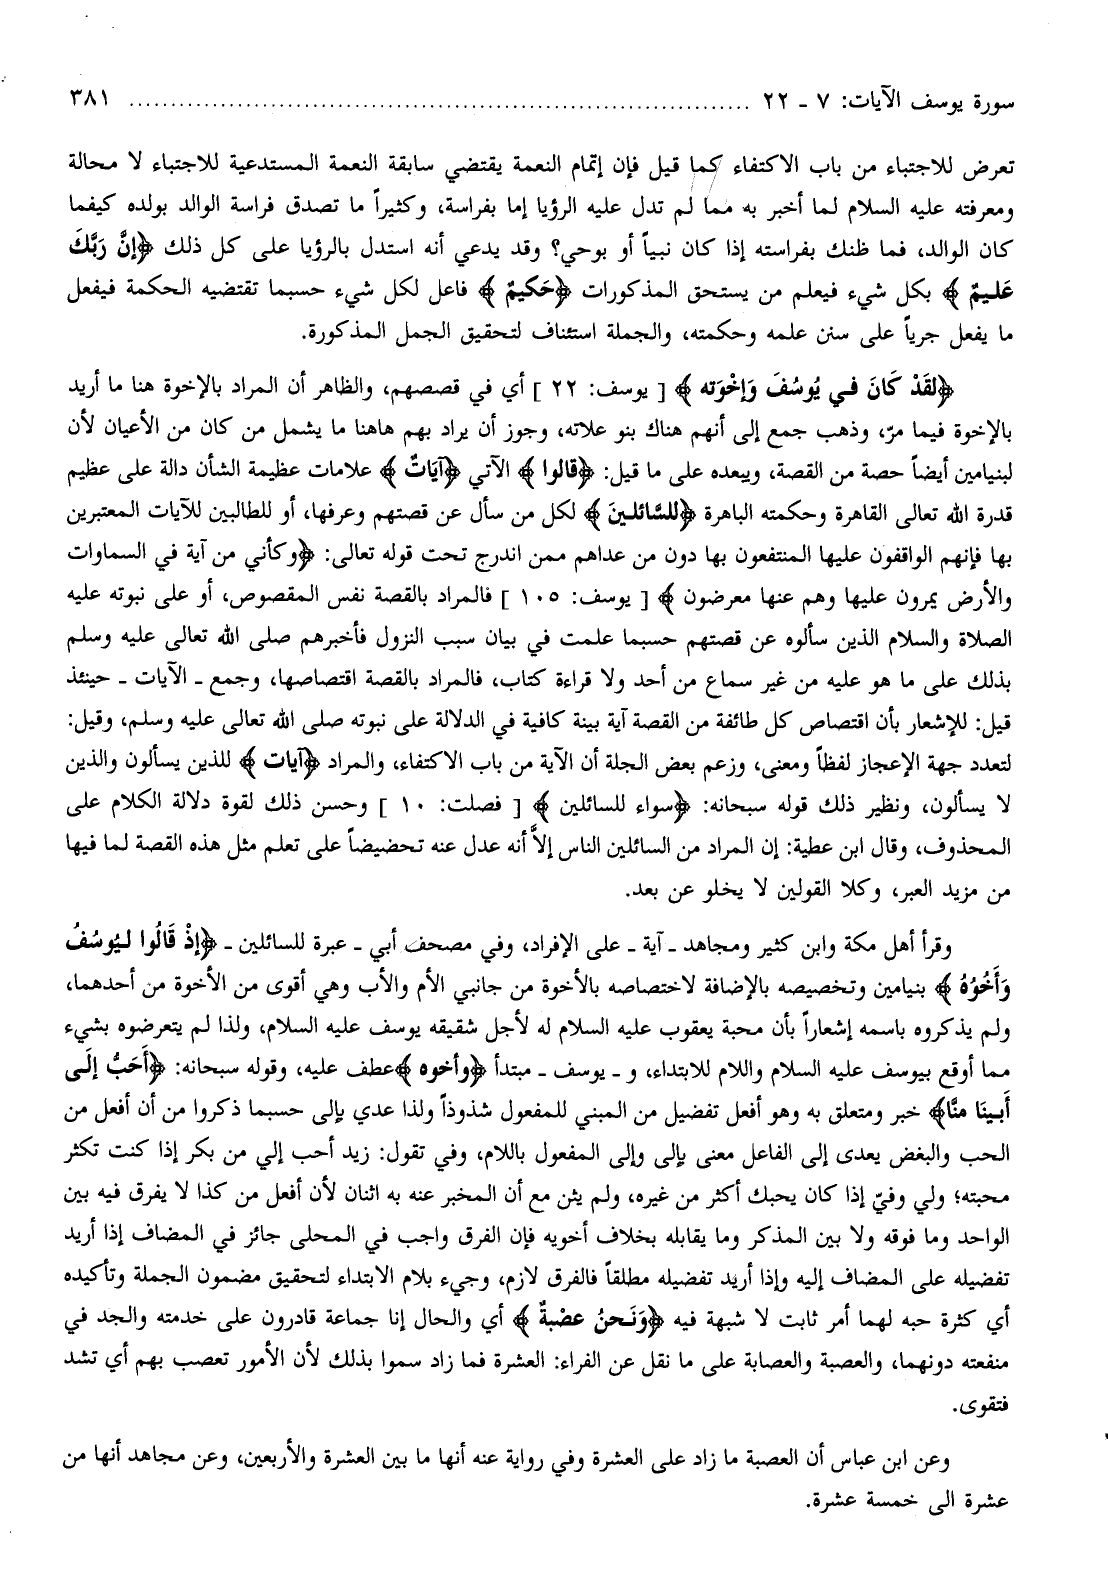 سورة يوسف الآيات: ٧ ـ ٢٢ ........................................................................... ٣٨١
تعرض للاجتباء من باب الاكتفاء كما قيل فإن إتمام النعمة يقتضي سابقة النعمة المستدعية للاجتباء لا محالة
ومعرفته عليه السلام لما أخبر به مما لم تدل عليه الرؤيا إما بفراسة، وكثيراً ما تصدق فراسة الوالد بولده كيفما
كان الوالد، فما ظنك بفراسته إذا كان نبياً أو بوحي؟ وقد يدعي أنه استدل بالرؤيا على كل ذلك ﴿إنَّ رَبَّكَ
عَلـيمٌ ﴾ بكل شيء فيعلم من يستحق المذكورات ﴿حَكيمٌ ﴾ فاعل لكل شيء حسبما تقتضيه الحكمة فيفعل
ما يفعل جرياً على سنن علمه وحكمته، والجملة استئناف لتحقيق الجمل المذكورة.
﴿لقَدْ كَانَ فـي يُوسُفَ وَإخْوَته ﴾ [ يوسف: ٢٢ ] أي في قصصهم، والظاهر أن المراد بالإخوة هنا ما أريد
بالإخوة فيما مرّ، وذهب جمع إلى أنهم هناك بنو علاته، وجوز أن يراد بهم هاهنا ما يشمل من كان من الأعيان لأن
لبنيامين أيضاً حصة من القصة، ويبعده على ما قيل: ﴿قالوا ﴾ الآتي ﴿آيَاتٌ ﴾ علامات عظيمة الشأن دالة على عظيم
قدرة الله تعالى القاهرة وحكمته الباهرة ﴿للسَّائلـينَ ﴾ لكل من سأل عن قصتهم وعرفها، أو للطالبين للآيات المعتبرين
بها فإنهم الواقفون عليها المنتفعون بها دون من عداهم ممن اندرج تحت قوله تعالى: ﴿وكأني من آية في السماوات
والأرض يمرون عليها وهم عنها معرضون ﴾ [ يوسف: ١٠٥ ] فالمراد بالقصة نفس المقصوص، أو على نبوته عليه
الصلاة والسلام الذين سألوه عن قصتهم حسبما علمت في بيان سبب النزول فأخبرهم صلى الله تعالى عليه وسلم
بذلك على ما هو عليه من غير سماع من أحد ولا قراءة كتاب، فالمراد بالقصة اقتصاصها، وجمع ـ الآيات ـ حينئذ
قيل: للإشعار بأن اقتصاص كل طائفة من القصة آية بينة كافية في الدلالة على نبوته صلى الله تعالى عليه وسلم، وقيل:
لتعدد جهة الإعجاز لفظاً ومعنى، وزعم بعض الجلة أن الآية من باب الاكتفاء، والمراد ﴿آيات ﴾ للذين يسألون والذين
لا يسألون، ونظير ذلك قوله سبحانه: ﴿سواء للسائلين ﴾ [ فصلت: ١٠ ] وحسن ذلك لقوة دلالة الكلام على
المحذوف، وقال ابن عطية: إن المراد من السائلين الناس إلاَّ أنه عدل عنه تحضيضاً على تعلم مثل هذه القصة لما فيها
من مزيد العبر، وكلا القولين لا يخلو عن بعد.
وقرأ أهل مكة وابن كثير ومجاهد ـ آية ـ على الإفراد، وفي مصحف أبي ـ عبرة للسائلين ـ ﴿إذْ قَالُوا لـيُوسُفُ
وَأَخُوُهُ ﴾ بنيامين وتخصيصه بالإضافة لاختصاصه بالأخوة من جانبي الأم والأب وهي أقوى من الأخوة من أحدهما،
ولم يذكروه باسمه إشعاراً بأن محبة يعقوب عليه السلام له لأجل شقيقه يوسف عليه السلام، ولذا لم يتعرضوه بشيء
مما أوقع بيوسف عليه السلام واللام للابتداء، و ـ يوسف ـ مبتدأ ﴿وأخوه ﴾عطف عليه، وقوله سبحانه: ﴿أَحَبُّ إلَى
أَبـينَا منَّا﴾ خبر ومتعلق به وهو أفعل تفضيل من المبني للمفعول شذوذاً ولذا عدي بإلى حسبما ذكروا من أن أفعل من
الحب والبغض يعدى إلى الفاعل معنى بإلى وإلى المفعول باللام، وفي تقول: زيد أحب إلي من بكر إذا كنت تكثر
محبته؛ ولي وفيّ إذا كان يحبك أكثر من غيره، ولم يثن مع أن المخبر عنه به اثنان لأن أفعل من كذا لا يفرق فيه بين
الواحد وما فوقه ولا بين المذكر وما يقابله بخلاف أخويه فإن الفرق واجب في المحلى جائز في المضاف إذا أريد
تفضيله على المضاف إليه وإذا أريد تفضيله مطلقاً فالفرق لازم، وجيء بلام الابتداء لتحقيق مضمون الجملة وتأكيده
أي كثرة حبه لهما أمر ثابت لا شبهة فيه ﴿وَنَـحنُ عصْبةٌ ﴾ أي والحال إنا جماعة قادرون على خدمته والجد في
منفعته دونهما، والعصبة والعصابة على ما نقل عن الفراء: العشرة فما زاد سموا بذلك لأن الأمور تعصب بهم أي تشد
فتقوى.
وعن ابن عباس أن العصبة ما زاد على العشرة وفي رواية عنه أنها ما بين العشرة والأربعين، وعن مجاهد أنها من
عشرة الى خمسة عشرة.